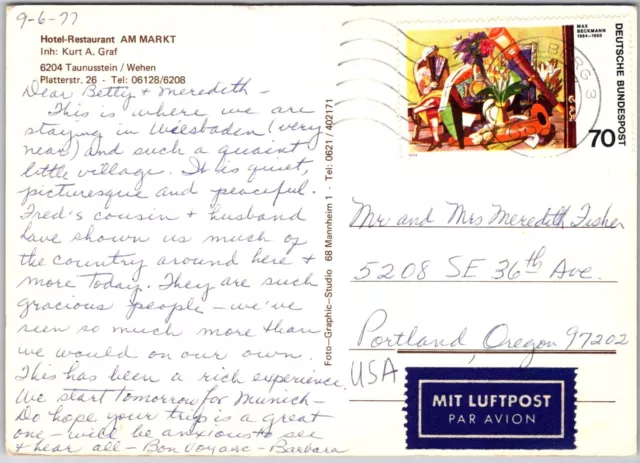 9-6-77
Hotel-Restaurant AM MARKT
Inh: Kurt A. Graf
6204 Taunusstein / Wehen
Platterstr. 26 - Tel: 06128/6208
Dear Betty & Meredith -
This is where we are
staying in Wiesbaden (very
near) and such a quaint
little village. It is quiet,
picturesque and peaceful.
Fred's cousin & husband
have shown us much of
the country around here &
more Today. They are such
gracious people - we've
seen so much more than
we would on our own.
This has been a rich experience.
We start tomorrow for Munich -
Do hope your trip is a great
one - will be anxious to see
& hear all - Bon Voyage - Barbara
Foto-Graphic-Studio 68 Mannheim 1 - Tel: 0621 / 402171
MAX
BECKMANN
1884-1950
DEUTSCHE BUNDESPOST
70
BERG 3
Mr and Mrs Meredith Fisher
5208 SE 36th Ave.
Portland, Oregon 97202
USA
MIT LUFTPOST
PAR AVION